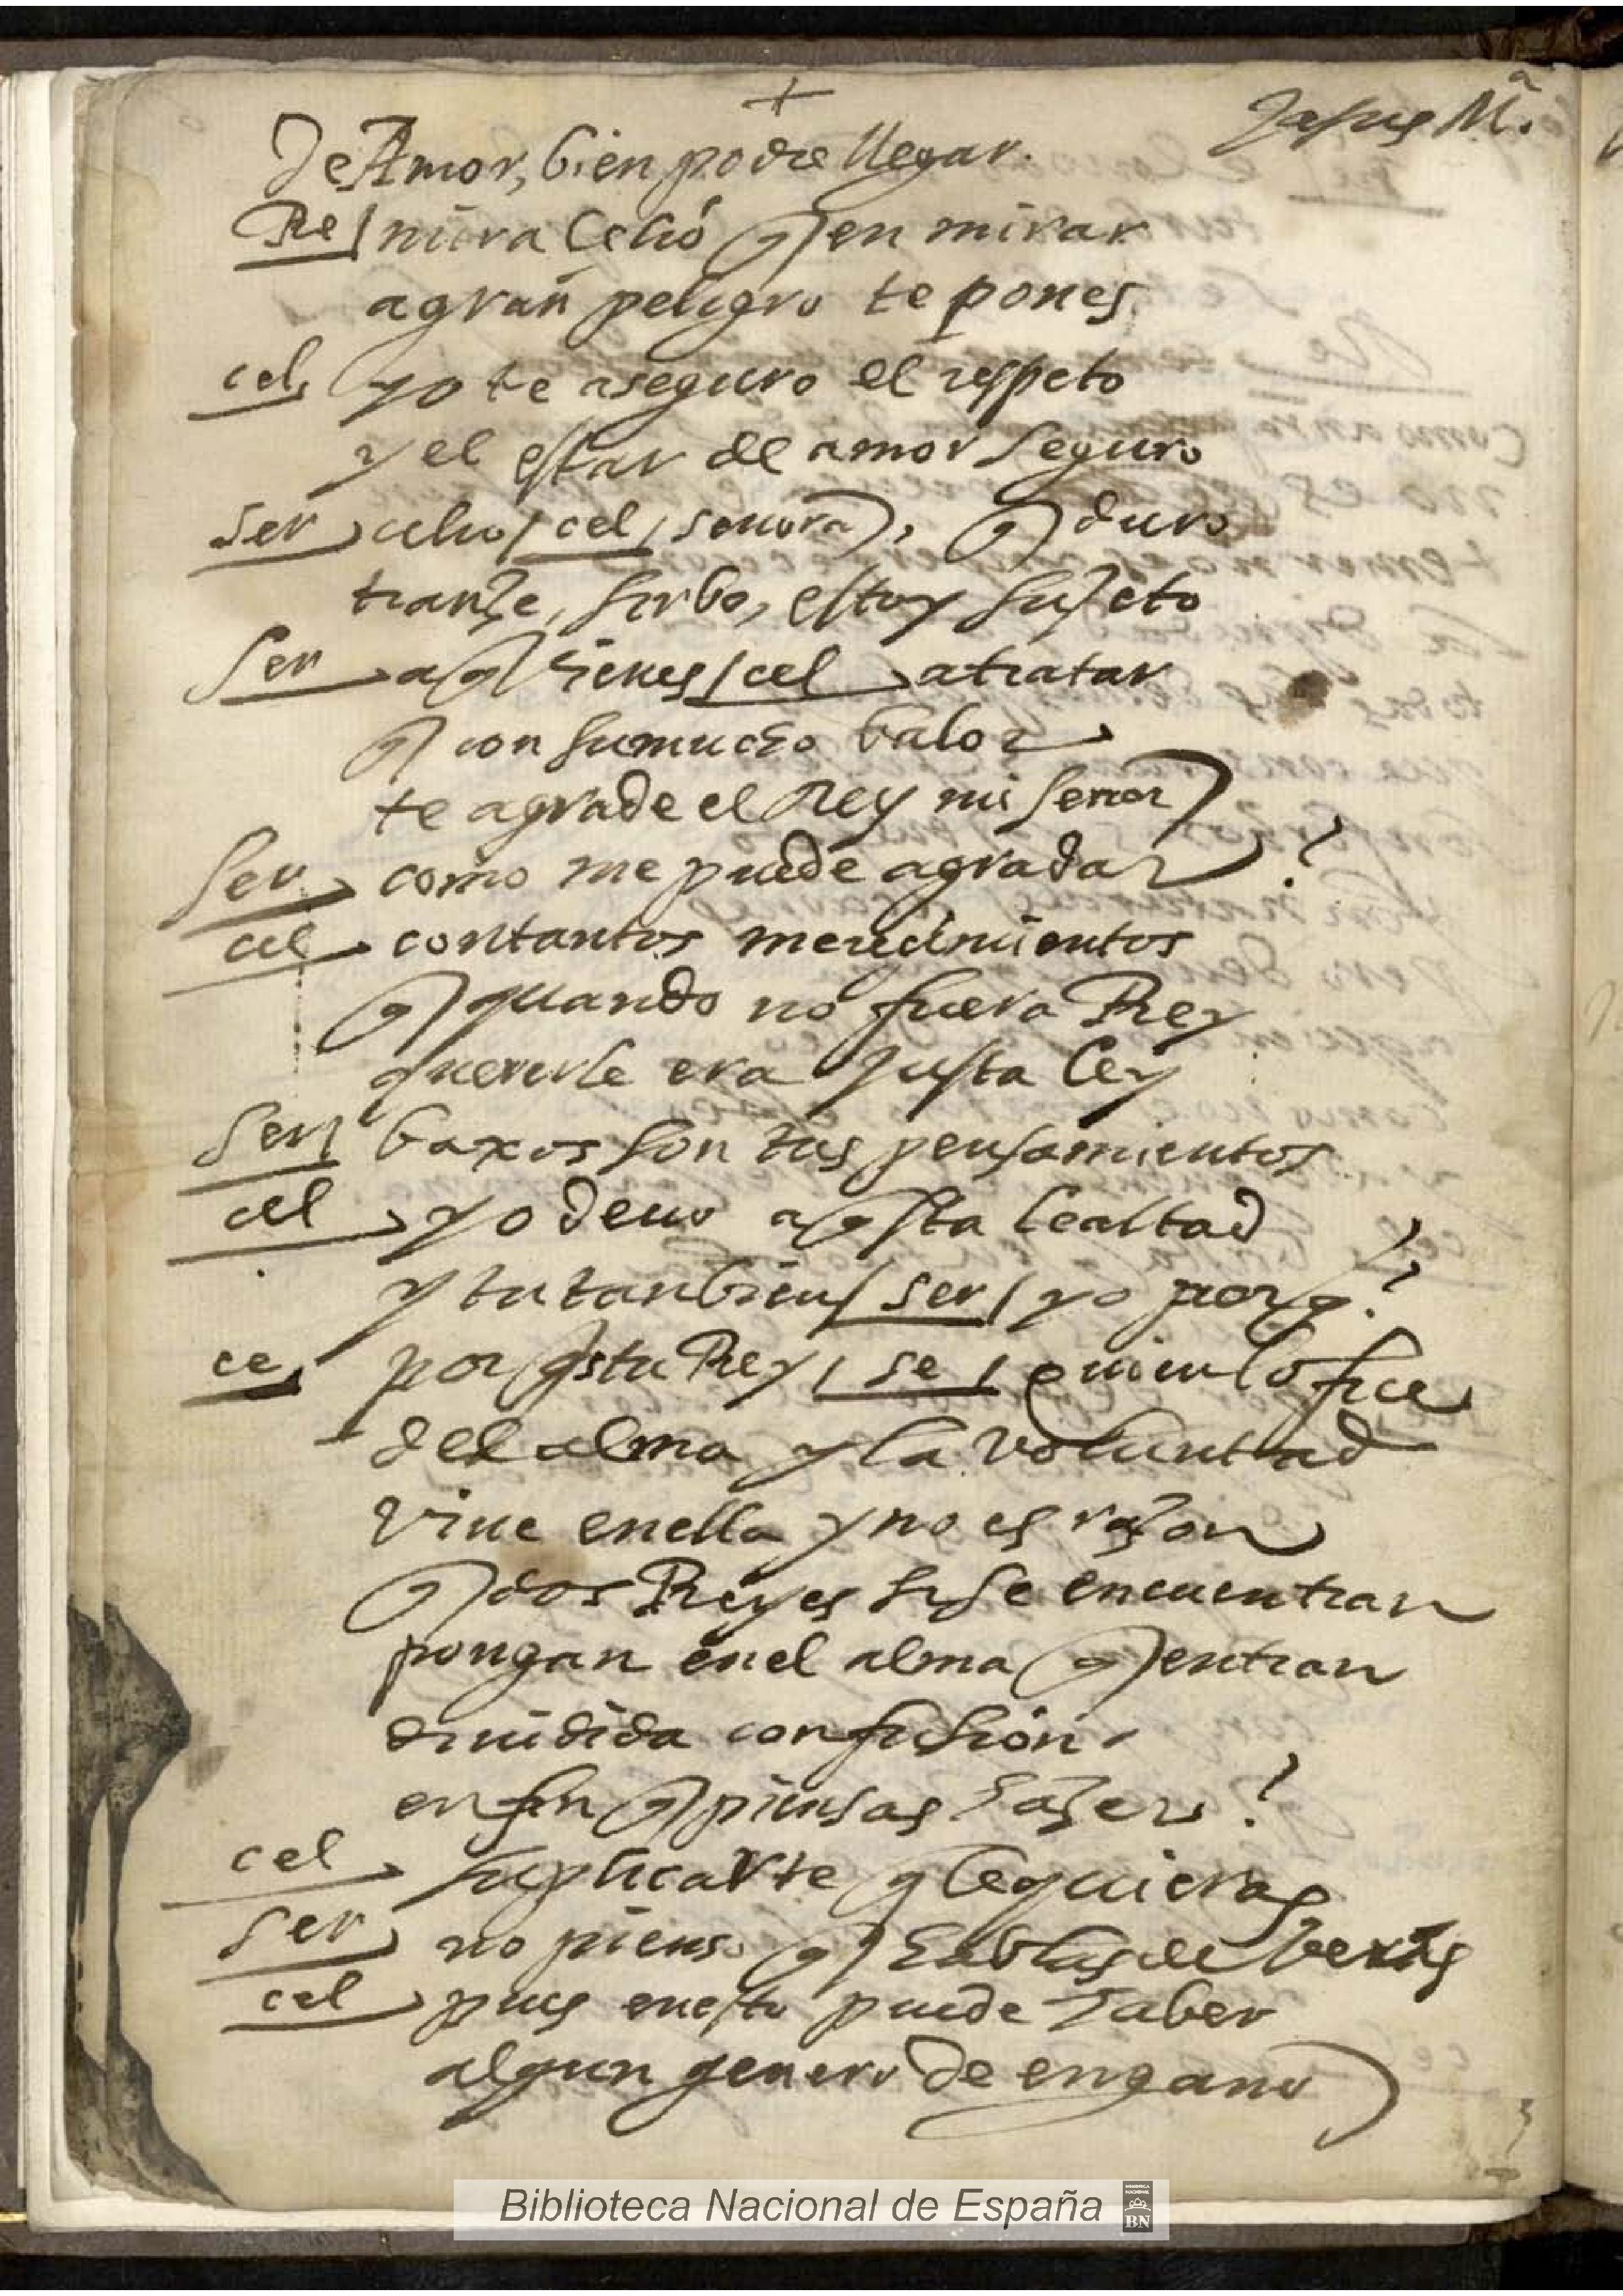 +
Jesus Mª.
de Amor, bien podre llegar.
Re mira Celio q en mirar
a gran peligro te pones
cel yo te aseguro el respeto
y el estar de amor seguro
ser celio / cel / senora, q duro
tranze, sirbo, estoy sujeto
ser a q bienes / cel a tratar
q con su mucho balor
te agrade el Rey mi senor
ser como me puede agradar?
cel con tantos merecimientos
q quando no fuera Rey
quererle era justa ley
ser baxos son tus pensamientos
cel yo deuo a q sta lealtad
y tu tanbien / ser / yo por q?
ce por q s tu Rey / se / quien lo fue
del alma y la voluntad
viue en ella y no es razon
q dos Reyes si se encuentran
pongan en el alma q entran
diuidida confusion.
en fin q piensas hazer?
cel suplicarte q le quieras
ser no pienso q hablas de beras
cel pues en esto puede haber
algun genero de engano
Biblioteca Nacional de España
BN